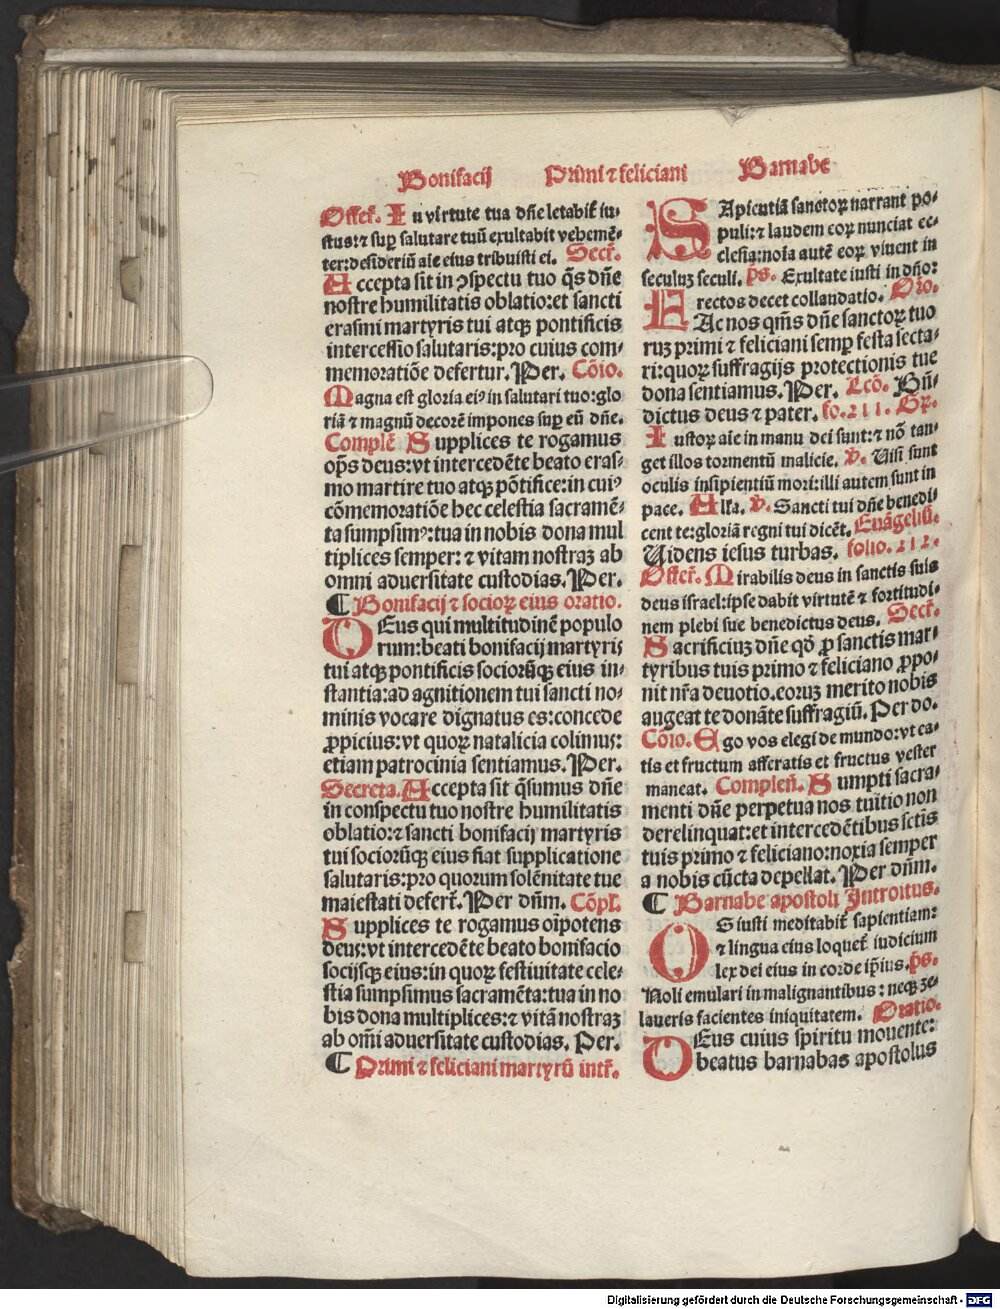 Bonifacij Primi ⁊ feliciani Barnabe
Offert̄. In virtute tua dñe letabit̉ iu⸗
stus:⁊ suꝑ salutare tuū exultabit vehemē⸗
ter:desideriū aīe eius tribuisti ei. Secr̄.
Accepta sit in ꝯspectu tuo q̄s dñe
nostre humilitatis oblatio:et sancti
erasmi martyris tui atqꝫ pontificis
intercessio salutaris:pro cuius com⸗
memoratiōe defertur. Per. Cōio.
Magna est gloria eiꝰ in salutari tuo:glo
riā ⁊ magnū decorē impones suꝑ eū dñe.
Complē Supplices te rogamus
oꝑs deus:vt intercedēte beato eras⸗
mo martire tuo atqꝫ pōtifice:in cuiꝰ
cōmemoratiōe hec celestia sacramē⸗
ta sumpsimꝰ:tua in nobis dona mul
tiplices semper: ⁊ vitam nostraꝫ ab
omni aduersitate custodias. Per.
¶ Bonifacij ⁊ socioꝝ eius oratio.
DEus qui multitudinē populo
rum:beati bonifacij martyris
tui atqꝫ pontificis sociorūqꝫ eius in⸗
stantia:ad agnitionem tui sancti no⸗
minis vocare dignatus es:concede
ꝓpicius:vt quoꝝ natalicia colimus:
etiam patrocinia sentiamus. Per.
Secreta. Accepta sit q̄sumus dñe
in conspectu tuo nostre humilitatis
oblatio:⁊ sancti bonifacij martyris
tui sociorūqꝫ eius fiat supplicatione
salutaris:pro quorum solēnitate tue
maiestati defert̉. Per dñm. Cōpl̄.
Supplices te rogamus oīpotens
deus:vt intercedēte beato bonifacio
socijsqꝫ eius:in quoꝝ festiuitate cele⸗
stia sumpsimus sacramēta:tua in no
bis dona multiplices:⁊ vitā nostraꝫ
ab om̄i aduersitate custodias. Per.
¶ Primi ⁊ feliciani martyrū intr̄.
SApientiā sanctoꝝ narrant po⸗
puli:⁊ laudem eoꝝ nunciat ec⸗
clesia:noīa autē eoꝝ viuent in
seculuꝫ seculi. p̄s. Exultate iusti in dño:
rectos decet collaudatio. Oro.
FAc nos qm̄s dñe sanctoꝝ tuo
ruꝫ primi ⁊ feliciani semꝑ festa secta⸗
ri:quoꝝ suffragijs protectionis tue
dona sentiamus. Per. Lcō. Bn̄⸗
dictus deus ⁊ pater. fo.211. Gr̄.
Iustoꝝ aīe in manu dei sunt:⁊ nō tan⸗
get illos tormentū malicie. v. Uisi sunt
oculis insipientiū mori:illi autem sunt in
pace. Alla. v. Sancti tui dñe benedi⸗
cent te:gloriā regni tui dicēt. Euāgeliū.
Uidens iesus turbas. folio.212.
Offert̄. Mirabilis deus in sanctis suis
deus israel:ipse dabit virtutē ⁊ fortitudi⸗
nem plebi sue benedictus deus. Secr̄.
Sacrificiuꝫ dñe qd̄ ꝓ sanctis mar⸗
tyribus tuis primo ⁊ feliciano ꝓpo⸗
nit nr̄a deuotio.eoruꝫ merito nobis
augeat te donāte suffragiū. Per do.
Cōio. Ego vos elegi de mundo:vt ea⸗
tis et fructum afferatis et fructus vester
maneat. Complen̄. Sumpti sacra⸗
menti dñe perpetua nos tuitio non
derelinquat:et intercedētibus sctīs
tuis primo ⁊ feliciano:noxia semper
a nobis cūcta depellat. Per dñm.
¶ Barnabe apostoli Introitus.
OS iusti meditabit̉ sapientiam:
⁊ lingua eius loquet̉ iudicium
lex dei eius in corde ip̄ius. p̄s.
Noli emulari in malignantibus : neqꝫ ze⸗
laueris facientes iniquitatem. Oratio.
DEus cuius spiritu mouente:
beatus barnabas apostolus
Digitalisierung gefördert durch die Deutsche Forschungsgemeinschaft - DFG